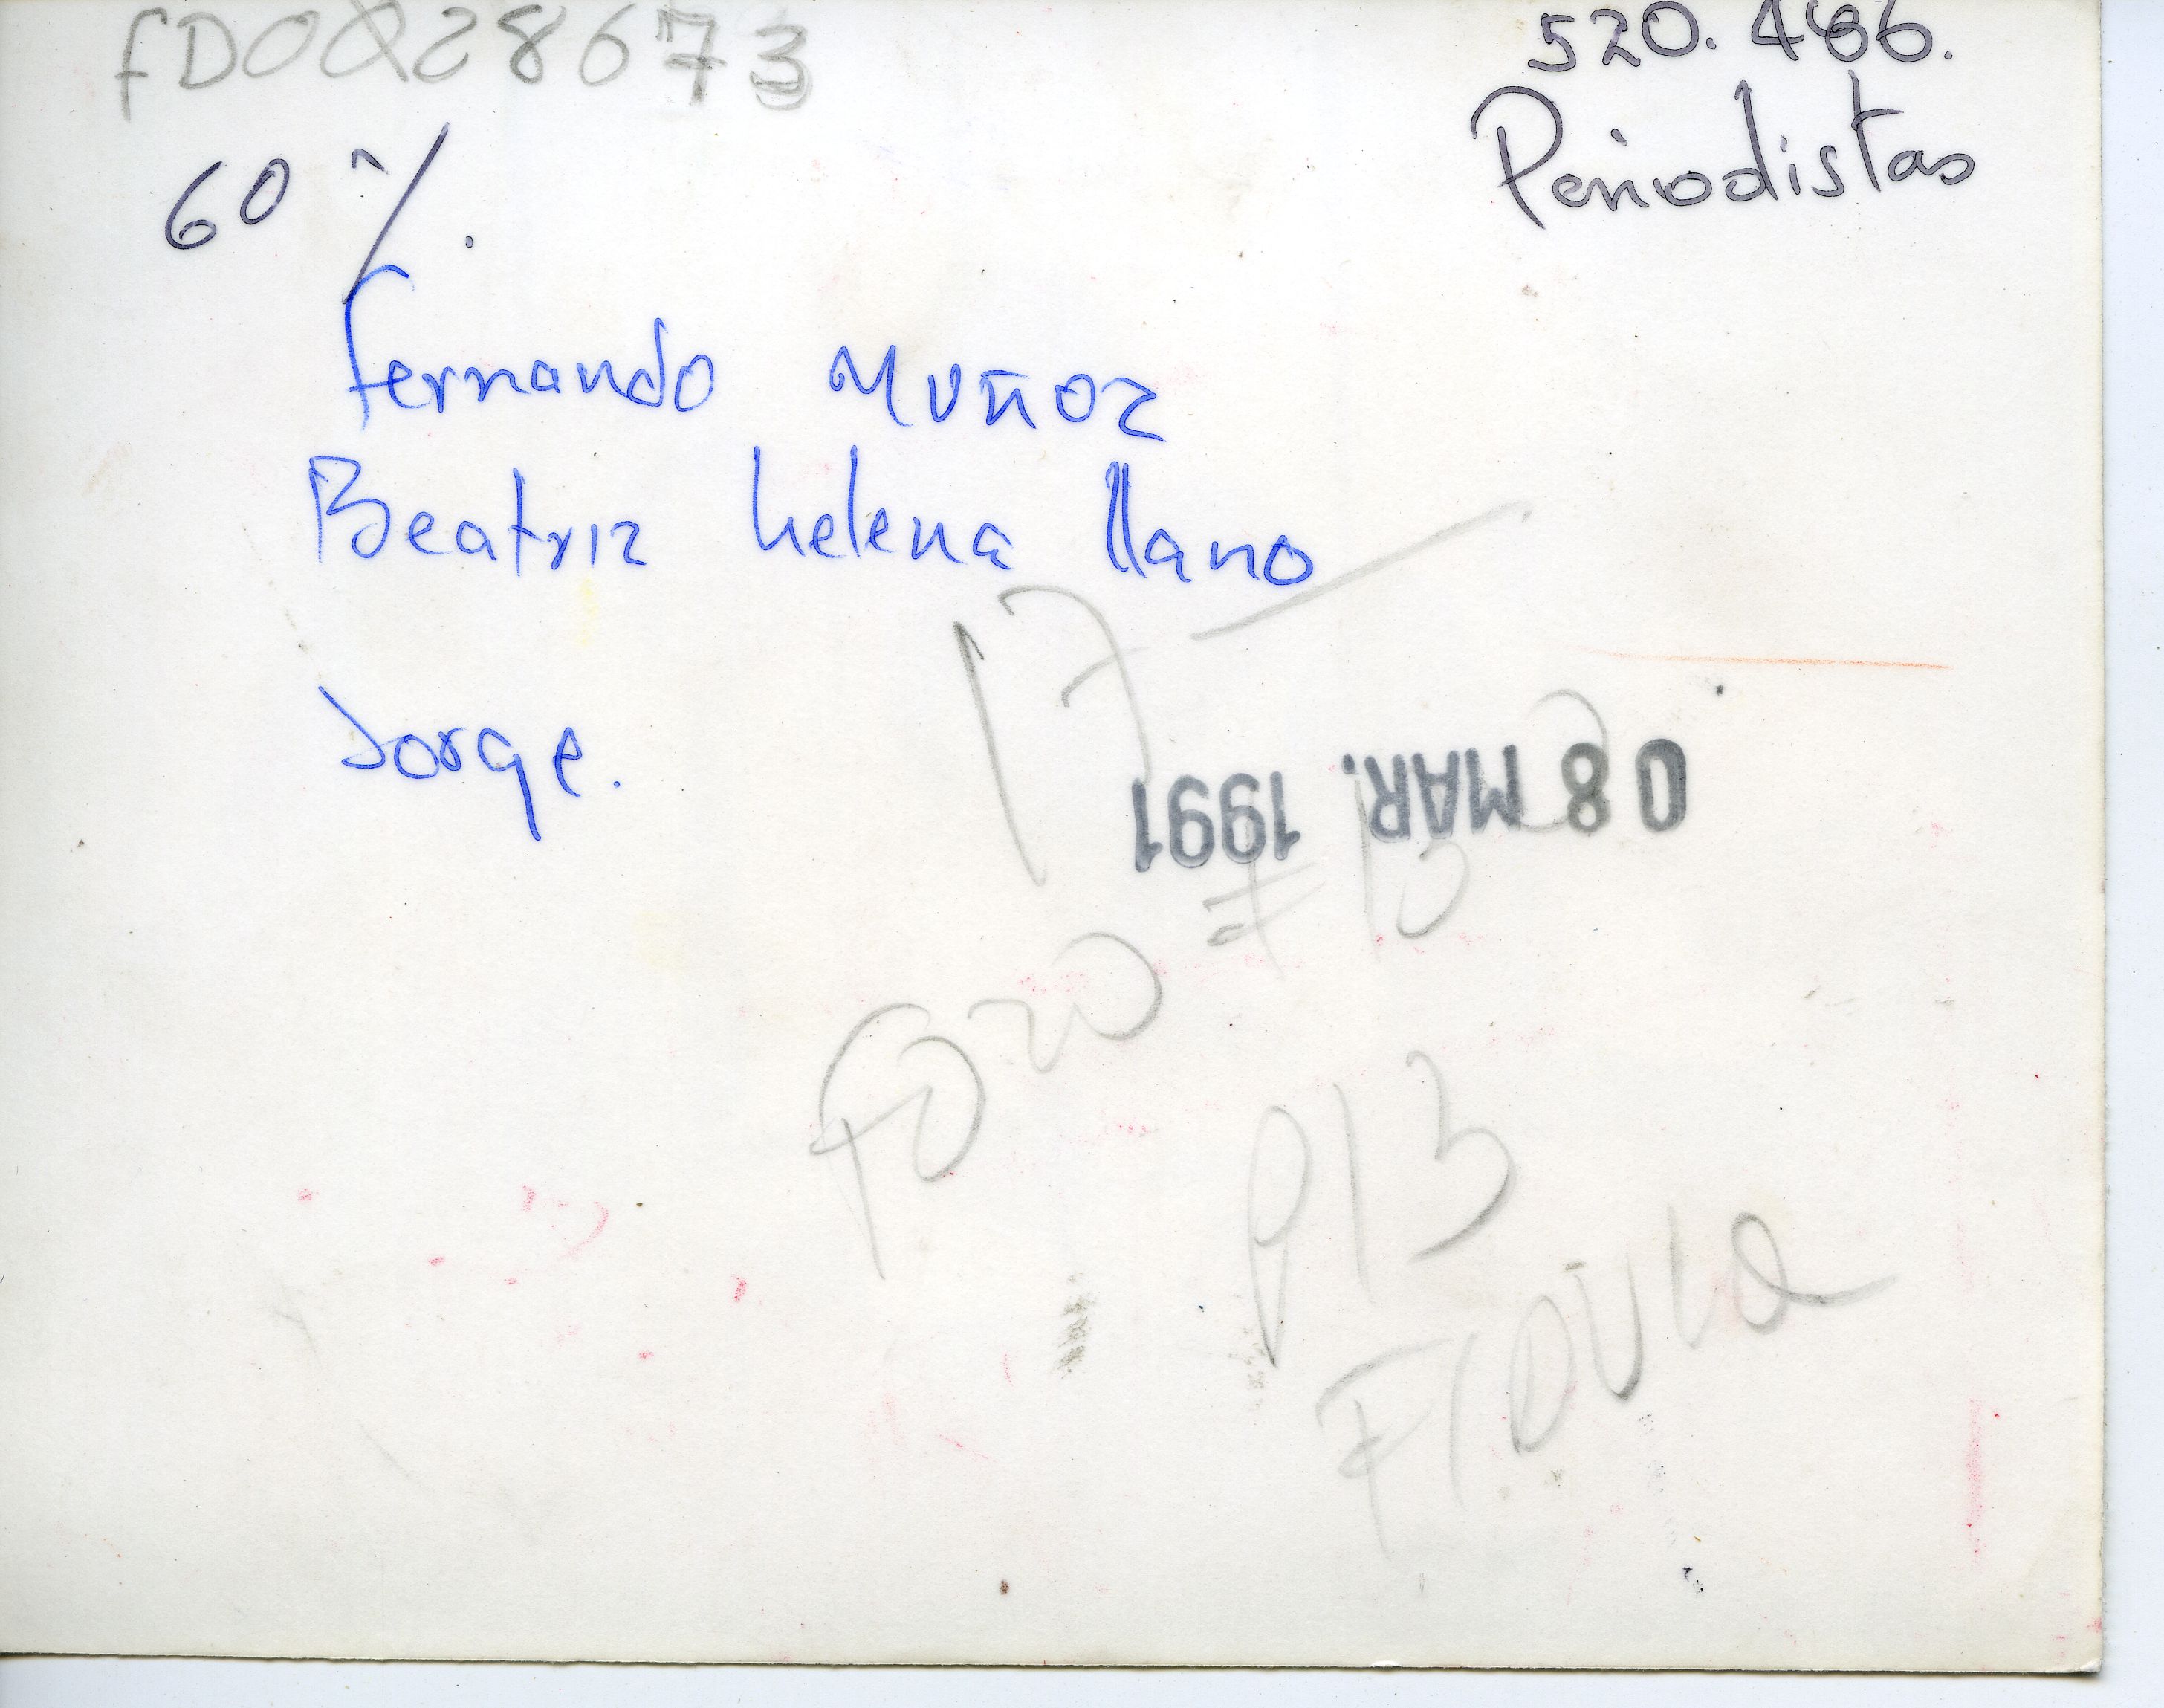 fDOQ28673
520.466.
Periodistas
60 %.
Fernando Muñoz
Beatriz helena llano
17
Jorge.
08 MAR. 1991
P13